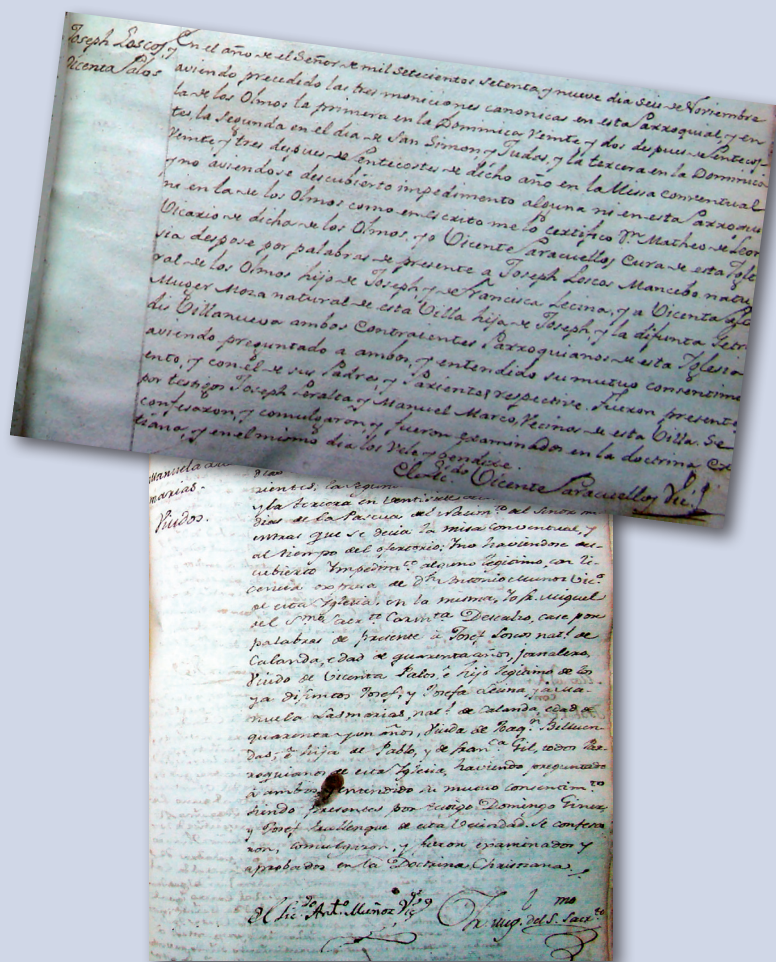 Joseph Loscos, y
Vicenta Palos
En el año de el Señor de mil setecientos setenta y nueve dia seis de Noviembre
aviendo precedido las tres moniciones canonicas en esta Parroquial, y en
la de los Olmos la primera en la Dominica Veinte y dos despues de Pentecos-
tes, la segunda en el dia de San Simon, y Judas, y la tercera en la Dominica
Veinte y tres depues de Pentecostes de dicho año en la Missa conventual
y no aviendose descubierto impedimento alguno ni en esta Parroquia
ni en la de los Olmos como en escrito me lo certifico Dn. Matheo de Leon
Vicario de dicha de los Olmos, yo Vicente Paracuellos Cura de esta Igle
sia despose por palabras de presente a Joseph Loscos Mancebo natu
ral de los Olmos hijo de Joseph, y de Francisca Lecina, y a Vicenta Palos
Muger Moza natural de esta Villa hija de Joseph, y la difunta Petro
Villanueva ambos Contraientes Parroquianos de esta Iglesia
aviendo preguntado a ambos, y entendido su mutuo consentimi
ento, y con el de sus Padres, y Parientes respective. Fueron presentes
por testigos Joseph Peralta, y Manuel Marco, Vecinos de esta Villa. Se
confesaron, y comulgaron, y fueron examinados en la doctrina Cris
tiana, y en el mismo dia los Vele y bendixe.
Vicente Paracuellos Vic.
Manuela
marias.
Viudos.
dias
y la tercera en veintiseis
dias de la Pascua del Nacim.to del Señor
entras que se decia la misa conventual, y
al tiempo del ofertorio; y no haviendose des
cubierto Impedim.to alguno legitimo, con li
cencia de Dn. Antonio Munoz Vic.o
de esta Iglesia, en la misma, Yo Fr. Miguel
del S.mo Sacr.to Carm.ta Descalzo, case por
palabras de presente à Josef Loscos nat.l de
Calanda, edad de quarenta años, jornalero,
Viudo de Vicenta Palos, è hijo legitimo de los
ya difuntos Josef, y Josefa Lecina, y à Ma
nuela Lasmarias, nat.l de Calanda, edad de
quarenta y un años, Viuda de Joaq.n
das, è hija de Pablo, y de Fran.ca Gil, todos Par
roquianos de esta Iglesia, haviendo preguntado
à ambos, y entendido su mutuo consentim.to
siendo presentes por testigo Domingo Giner,
y Josef de esta Vecindad. Se confesa
ron, comulgaron, y fueron examinados y
aprobados en la Doctrina Christiana.
El Lic.do Ant.o Muñoz Vic.
Fr. Mig. del S.mo Sacr.to